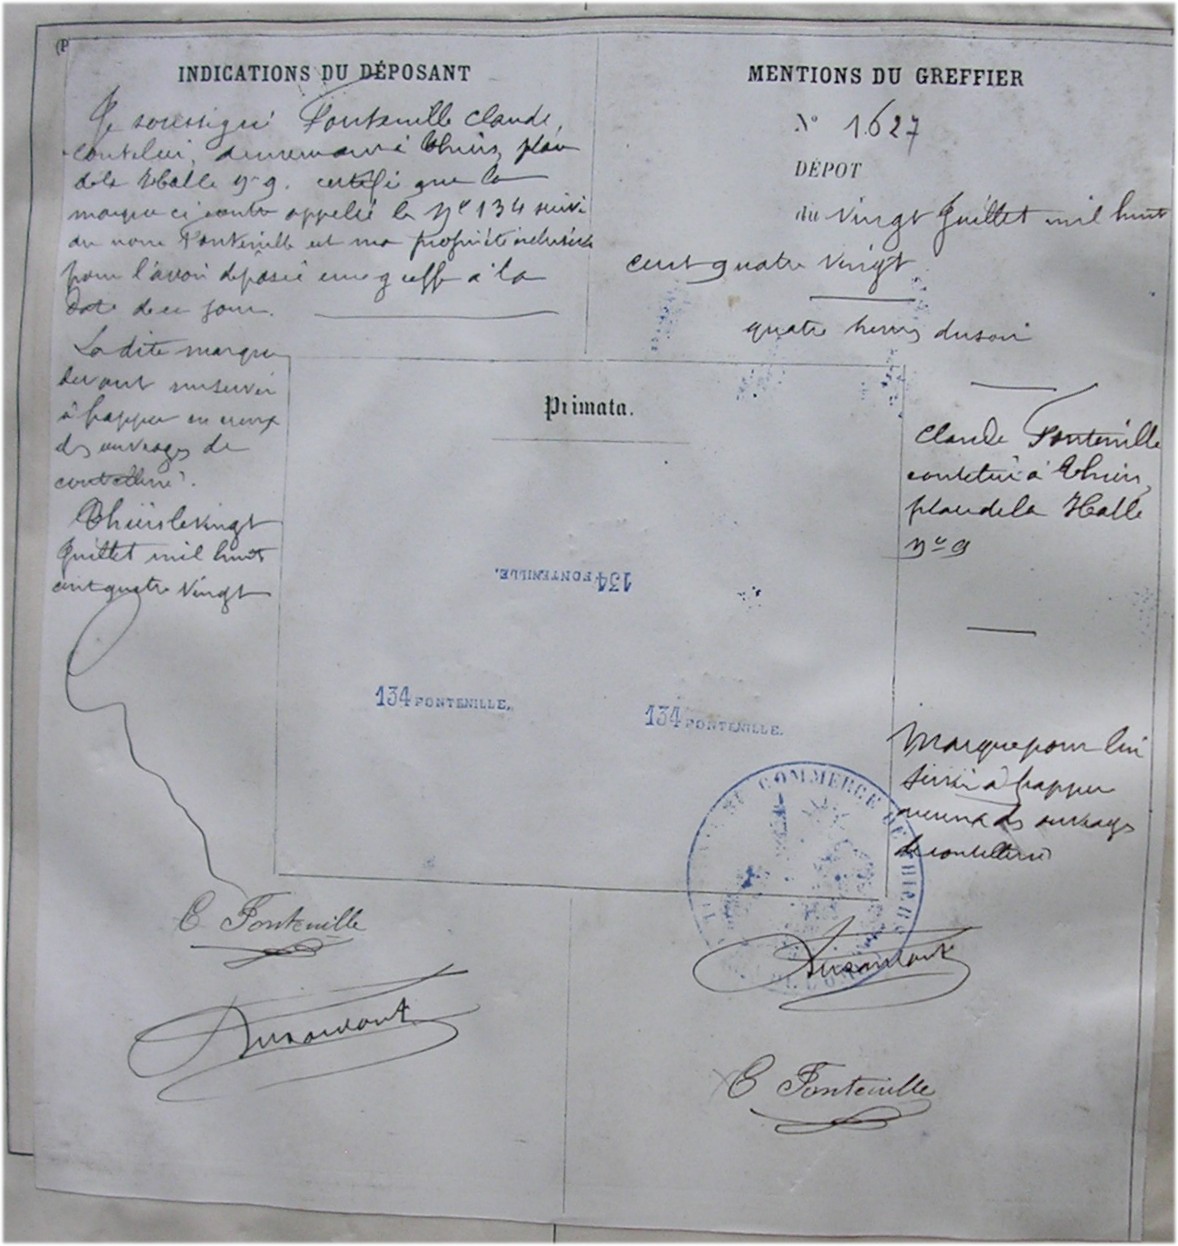 (P
INDICATIONS DU DÉPOSANT
Je soussigné Fontenille Claude,
coutelier, demeurant à Thiers, place
de la Halle nº 9. certifie que la
marque ci contre appelée le Nº 134 suivi
du nom Fontenille est ma propriété exclusive
pour l'avoir déposée au greffe à la
Date de ce jour.
La dite marque
devant me servir
à frapper en creux
des ouvrages de
coutellerie.
Thiers le vingt
Juillet mil huit
cent quatre vingt
C Fontenille
MENTIONS DU GREFFIER
Nº 1.627
DÉPOT
du vingt Juillet mil huit
cent quatre vingt
quatre heures du soir
Claude Fontenille
coutelier à Thiers,
place de la Halle
nº 9
Marque pour lui
servir à frapper
en creux des ouvrages
de coutellerie
Primata.
134 FONTENILLE.
134 FONTENILLE.
134 FONTENILLE.
TRIBUNAL DE COMMERCE DE THIERS
C Fontenille